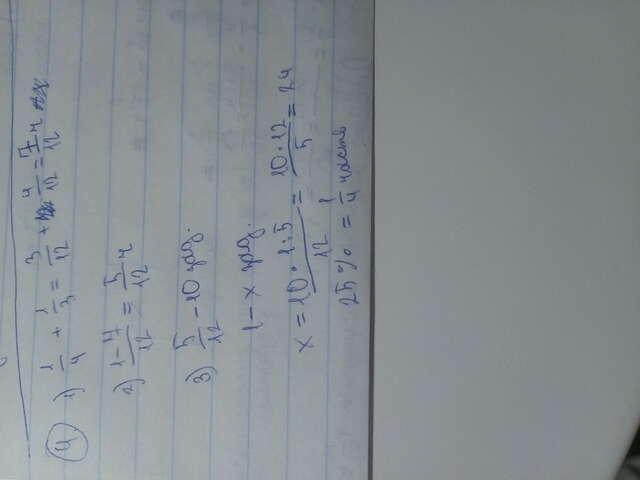 4) 1) 1/4 + 1/3 = 3/12 + 4/12 = 7/12 ч
2) 1 - 7/12 = 5/12 ч
3) 5/12 - 10 зад.
1 - x зад.
x = 10 · 1 : 5/12 = 10 · 12/5 = 24
25% = 1/4 часть